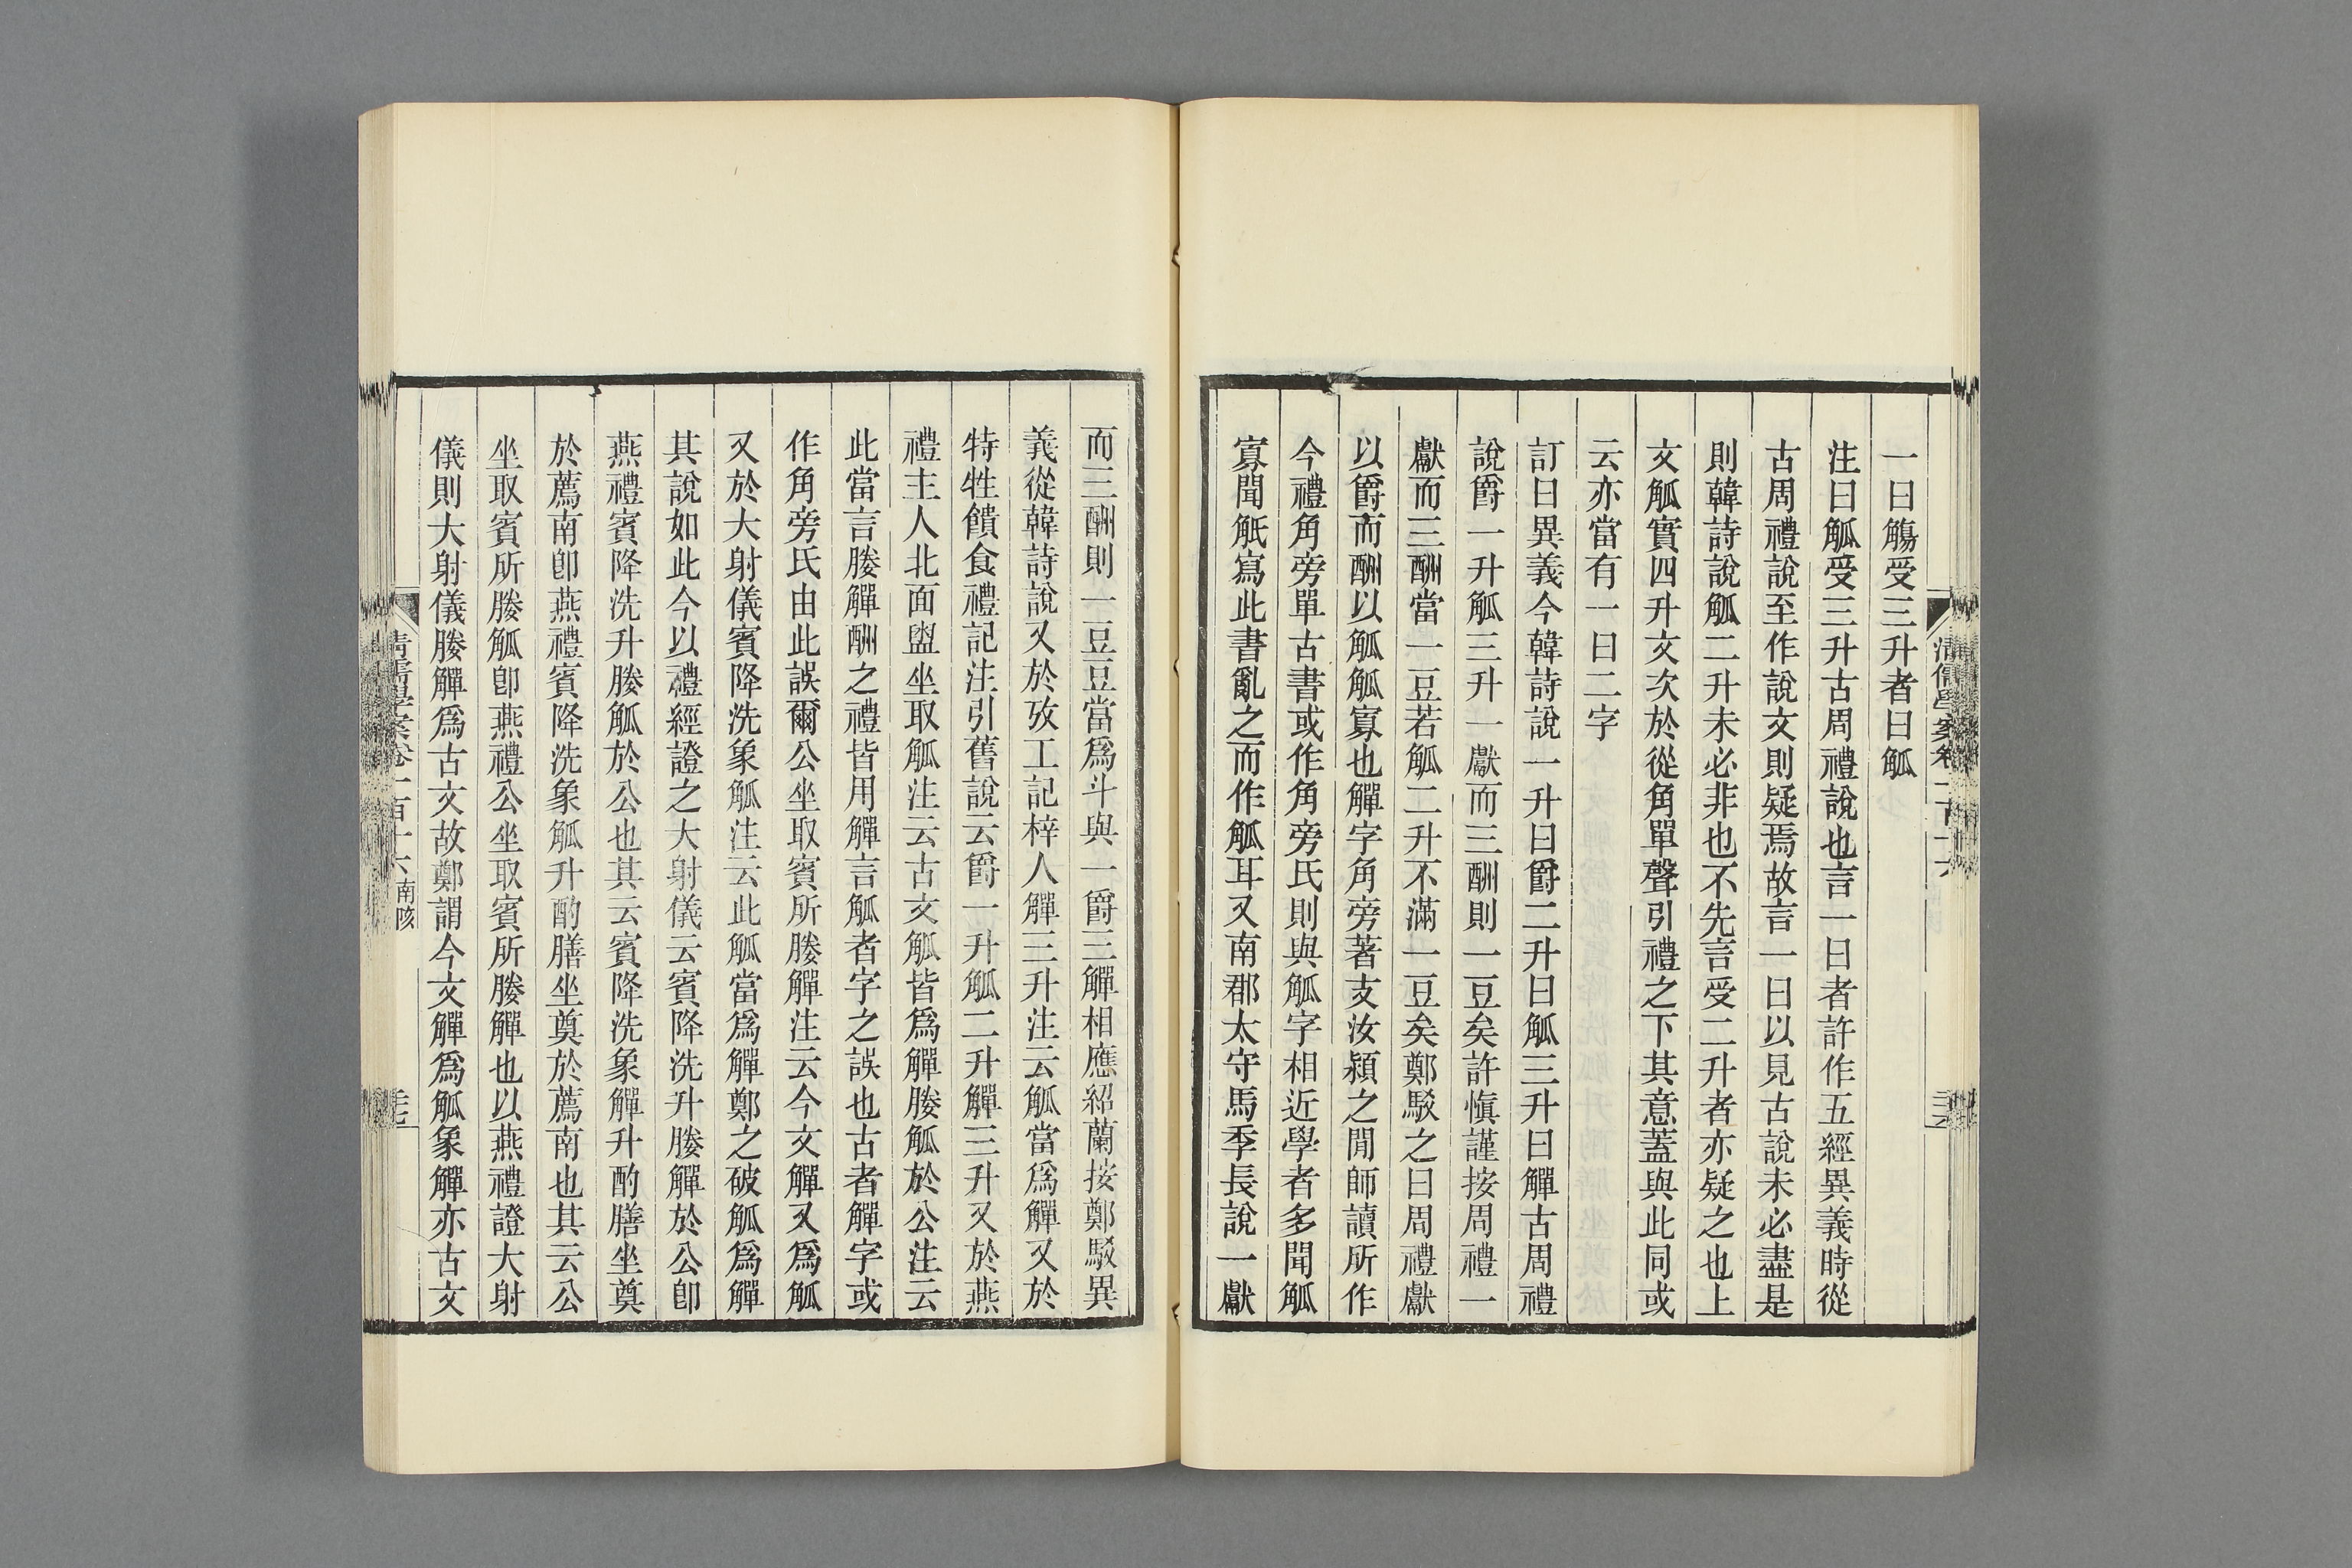 一曰觴受三升者曰觚
注曰觚受三升古周禮說也言一曰者許作五經異義時從
古周禮說至作說文則疑焉故言一曰以見古說未必盡是
則韓詩說觚二升未必非也不先言受二升者亦疑之也上
文觚實四升文次於從角單聲引禮之下其意蓋與此同或
云亦當有一曰二字
訂曰異義今韓詩說一升曰爵二升曰觚三升曰觶古周禮
說爵一升觚三升一獻而三酬則一豆矣許慎謹按周禮一
獻而三酬當一豆若觚二升不滿一豆矣鄭駁之曰周禮獻
以爵而酬以觚觚寡也觶字角旁著支汝潁之閒師讀所作
今禮角旁單古書或作角旁氏則與觚字相近學者多聞觚
寡聞觗寫此書亂之而作觚耳又南郡太守馬季長說一獻
而三酬則一豆豆當爲斗與一爵三觶相應紹蘭按鄭駁異
義從韓詩說又於攷工記梓人觶三升注云觚當爲觶又於
特牲饋食禮記注引舊說云爵一升觚二升觶三升又於燕
禮主人北面盥坐取觚注云古文觚皆爲觶媵觚於公注云
此當言媵觶酬之禮皆用觶言觚者字之誤也古者觶字或
作角旁氏由此誤爾公坐取賓所媵觶注云今文觶又爲觚
又於大射儀賓降洗象觚注云此觚當爲觶鄭之破觚爲觶
其說如此今以禮經證之大射儀云賓降洗升媵觶於公卽
燕禮賓降洗升媵觚於公也其云賓降洗象觶升酌膳坐奠
於薦南卽燕禮賓降洗象觚升酌膳坐奠於薦南也其云公
坐取賓所媵觚卽燕禮公坐取賓所媵觶也以燕禮證大射
儀則大射儀媵觶爲古文故鄭謂今文觶爲觚象觶亦古文
清儒學案卷一百十六 南陔